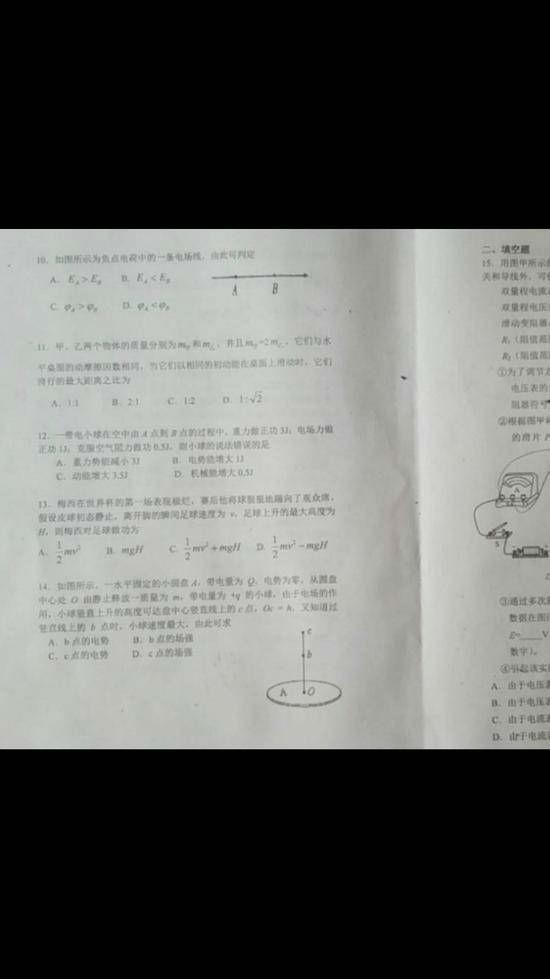 10. 如图所示为负点电荷中的一条电场线，由此可判定
A. E_A＞E_B B. E_A＜E_B
C. φ_A＞φ_B D. φ_A＜φ_B
A B
11. 甲、乙两个物体的质量分别为m甲和m乙，并且m甲=2m乙，它们与水
平桌面的动摩擦因数相同，当它们以相同的初动能在桌面上滑动时，它们
滑行的最大距离之比为
A. 1:1 B. 2:1 C. 1:2 D. 1:√2
12. 一带电小球在空中由A点到B点的过程中，重力做正功3J，电场力做
正功1J，克服空气阻力做功0.5J，则小球的说法错误的是
A. 重力势能减小3J B. 电势能增大1J
C. 动能增大3.5J D. 机械能增大0.5J
13. 梅西在世界杯的第一场表现极烂，赛后他将球狠狠地踢向了观众席，
假设皮球初态静止，离开脚的瞬间足球速度为v，足球上升的最大高度为
H，则梅西对足球做功为
A. 1/2 mv² B. mgH C. 1/2 mv²+mgH D. 1/2 mv²−mgH
14. 如图所示，一水平固定的小圆盘A，带电量为Q，电势为零，从圆盘
中心处O由静止释放一质量为m，带电量为+q的小球，由于电场的作
用，小球竖直上升的高度可达盘中心竖直线上的c点，Oc=h，又知道过
竖直线上的b点时，小球速度最大，由此可求
A. b点的电势 B. b点的场强
C. c点的电势 D. c点的场强
c
b
A O
二、填空题
15. 用图甲所示
关和导线外，可
双量程电流
双量程电压
滑动变阻器
R₁（阻值范
R₂（阻值范
①为了调节方
电压表的
阻器符号
②根据图甲
的滑片P
A
S
③通过多次
数据在图
E=____V
数字）。
④引起该实
A. 由于电压表
B. 由于电压表
C. 由于电流表
D. 由于电流